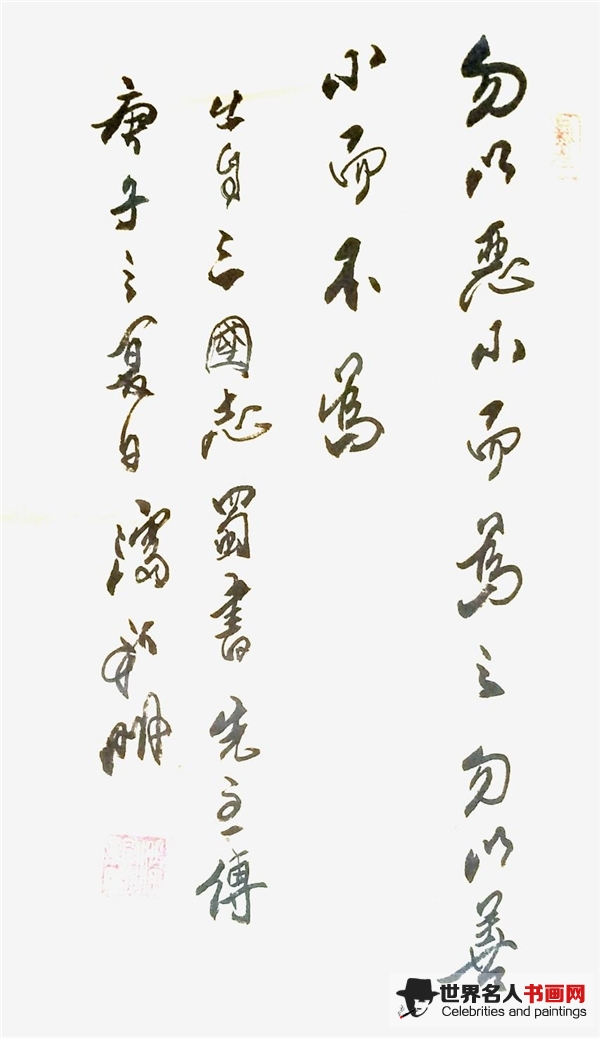 勿以惡小而為之勿以善
小而不為
出自三國志蜀書先主傳
庚子之夏日潘新明
世界名人书画网
Celebrities and paintings